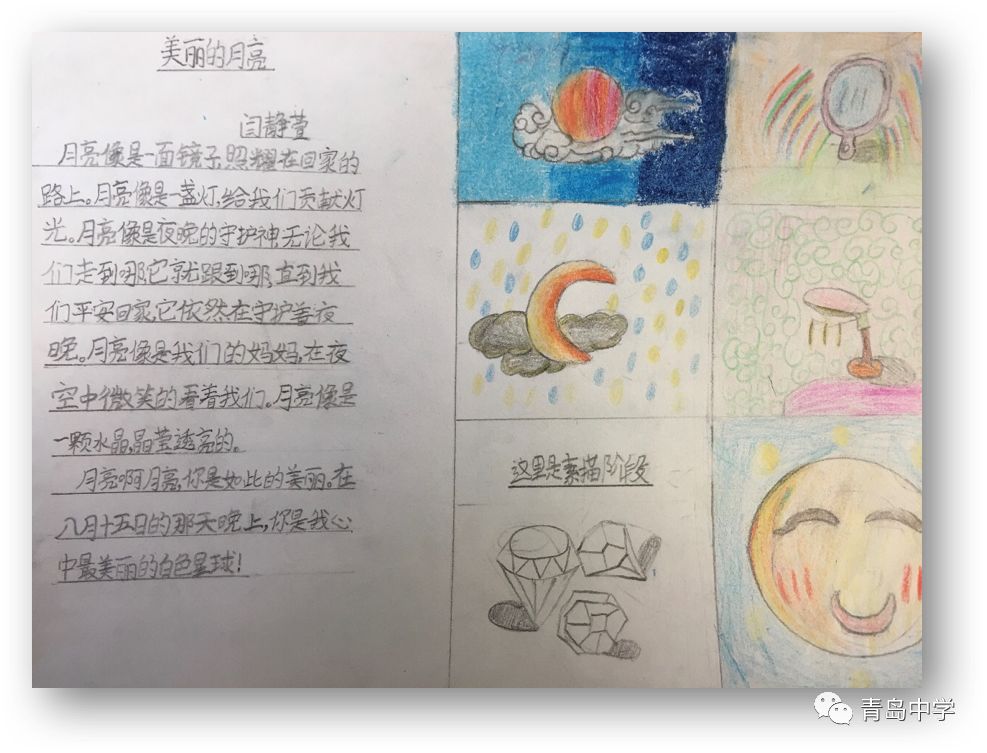 美丽的月亮
闫静萱
月亮像是一面镜子,照耀在回家的
路上。月亮像是一盏灯,给我们贡献灯
光。月亮像是夜晚的守护神无论我
们走到哪它就跟到哪,直到我
们平安回家,它依然在守护着夜
晚。月亮像是我们的妈妈,在夜
空中微笑的看着我们。月亮像是
一颗水晶,晶莹透亮的。
月亮啊月亮,你是如此的美丽。在
八月十五日的那天晚上,你是我心
中最美丽的白色星球!
这里是素描阶段
青岛中学